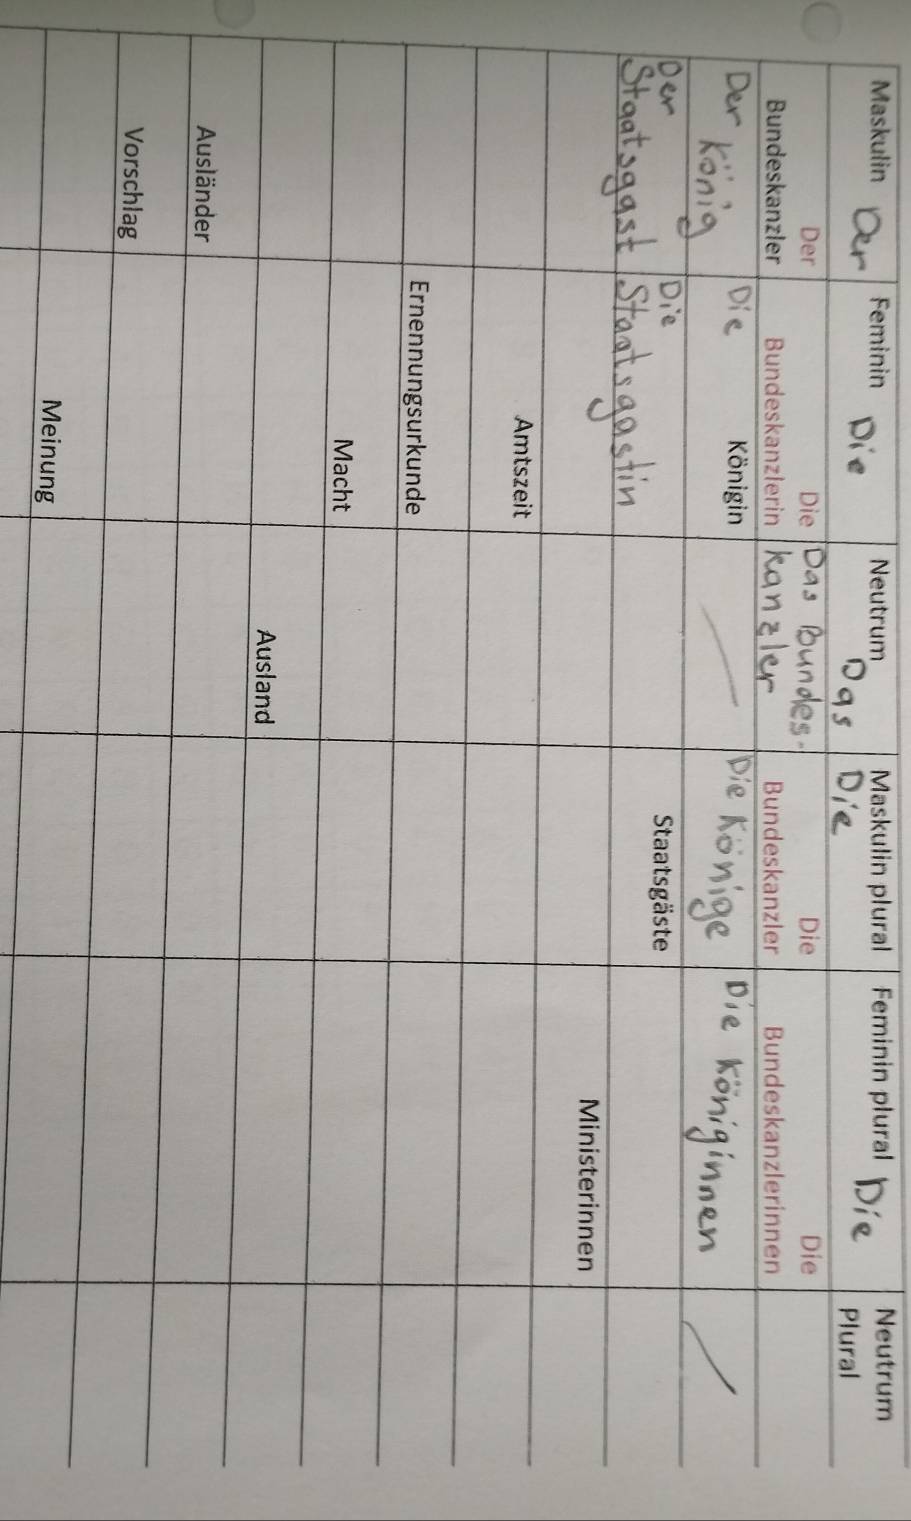 Maskulin Der Feminin Die Neutrum Das Maskulin plural Die Feminin plural Die Neutrum Plural
Der Bundeskanzler Die Bundeskanzlerin Das Bundes- kanzler Die Bundeskanzler Die Bundeskanzlerinnen
Der König Die Königin Die Könige Die Königinnen
Der Staatsgast Die Staatsgastin Staatsgäste
Ministerinnen
Amtszeit
Ernennungsurkunde
Macht
Ausland
Ausländer
Vorschlag
Meinung